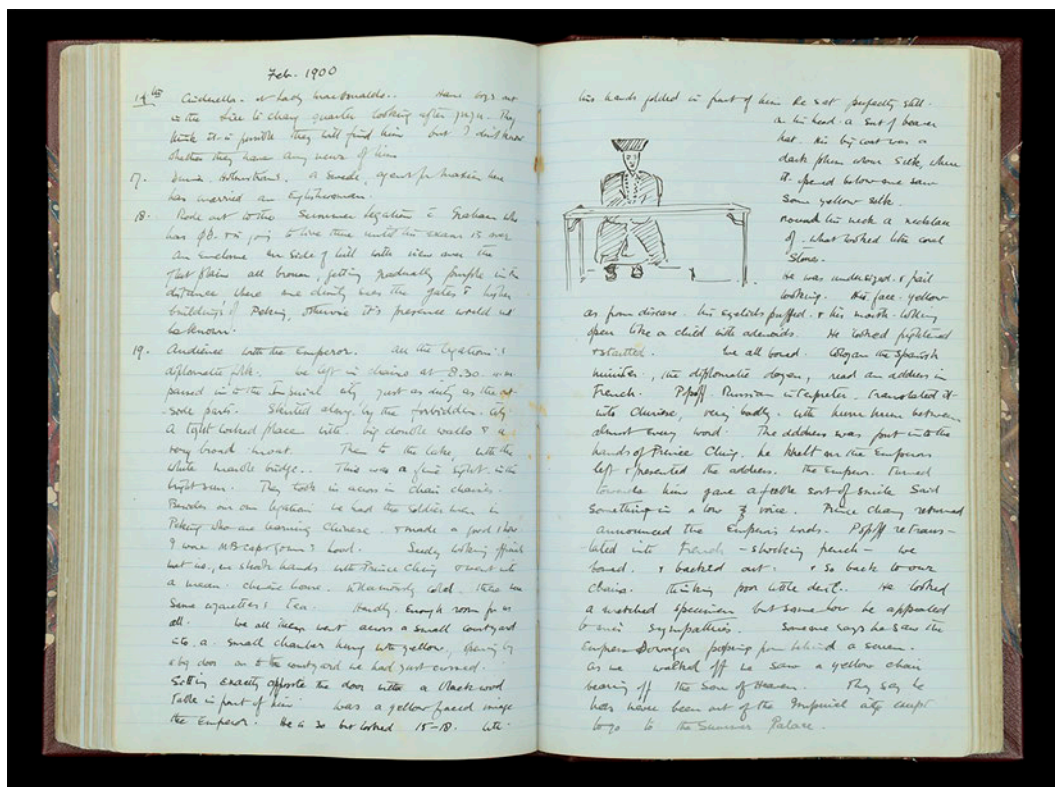 Feb. 1900
14th Cinderella. at Lady MacDonalds.. Have boys out
in the quarter looking after They
think it is possible they will find him but I don't know
whether they have any news of him
17. Dined. a Swede, agent for here
has married an Englishwoman.
18. Rode out to the Summer Legation Graham who
has going to live there until his exam is over
An side of hill with view over the
flat plain all brown getting gradually purple in the
distance, where one dimly sees the gates & higher
buildings of Peking, otherwise it's presence would
unknown.
19. Audience with the Emperor. all the legation's
diplomatic folk. We left in chairs at 8.30.
passed into the Imperial city just as dirty as the out
-side part. Skirted along by the forbidden city
A tight locked place with big double walls & a
very broad moat. Then to the lake, with the
white marble bridge.. This was a fine sight in the
bright sun. They took us across in chairs.
Besides our own legation we had the soldier men in
Peking who are learning Chinese & made a good show
I wore MB cap gown & hood. Seedy looking officials
met us, we shook hands with Prince Ching & went into
a mean Chinese house. cold. there was
some cigarettes & tea. Hardly enough room for us
all. We all then went across a small courtyard
into a small chamber hung with yellow, opening by
a big door on to the courtyard we had just crossed.
Sitting exactly opposite the door with a blackwood
table in front of him was a yellow faced image
the Emperor. He is 30 but looked 15-18. with
his hands folded in front of him he sat perfectly still.
on his head a sort of beaver
hat. His big coat was a
dark plum colour silk, when
it opened below one saw
some yellow silk.
round his neck a necklace
of what looked like coral
stones.
He was undersized & frail
looking. His face yellow
as from disease. his eyelids puffed & his mouth
open like a child with adenoids. He looked frightened
& startled. We all bowed. Cologan the Spanish
minister, the diplomatic doyen, read an address in
French. Popoff Russian interpreter, translated it
into Chinese, very badly. with hum hum between
almost every word. The address was put into the
hands of Prince Ching. he knelt on the Emperors
left & presented the address. The Emperor turned
towards him gave a feeble sort of smile said
something in a low voice. Prince Ching returned
announced the Emperors words. Popoff retrans-
-lated into French - shocking french - we
bowed. & backed out. & so back to our
chairs. Thinking poor little devil. He looked
a wretched specimen but some how he appealed
to one's sympathies. Someone says he saw the
Empress Dowager peeping from behind a screen.
as we walked off we saw a yellow chair
bearing off the Son of Heaven. They say he
has never been out of the Imperial city except
to go to the Summer Palace.